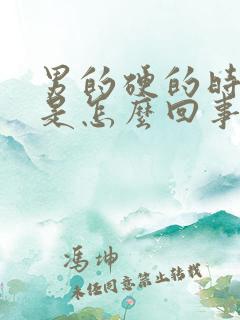 男的硬的时
是怎麼回事
冯坤
未经同意禁止转载